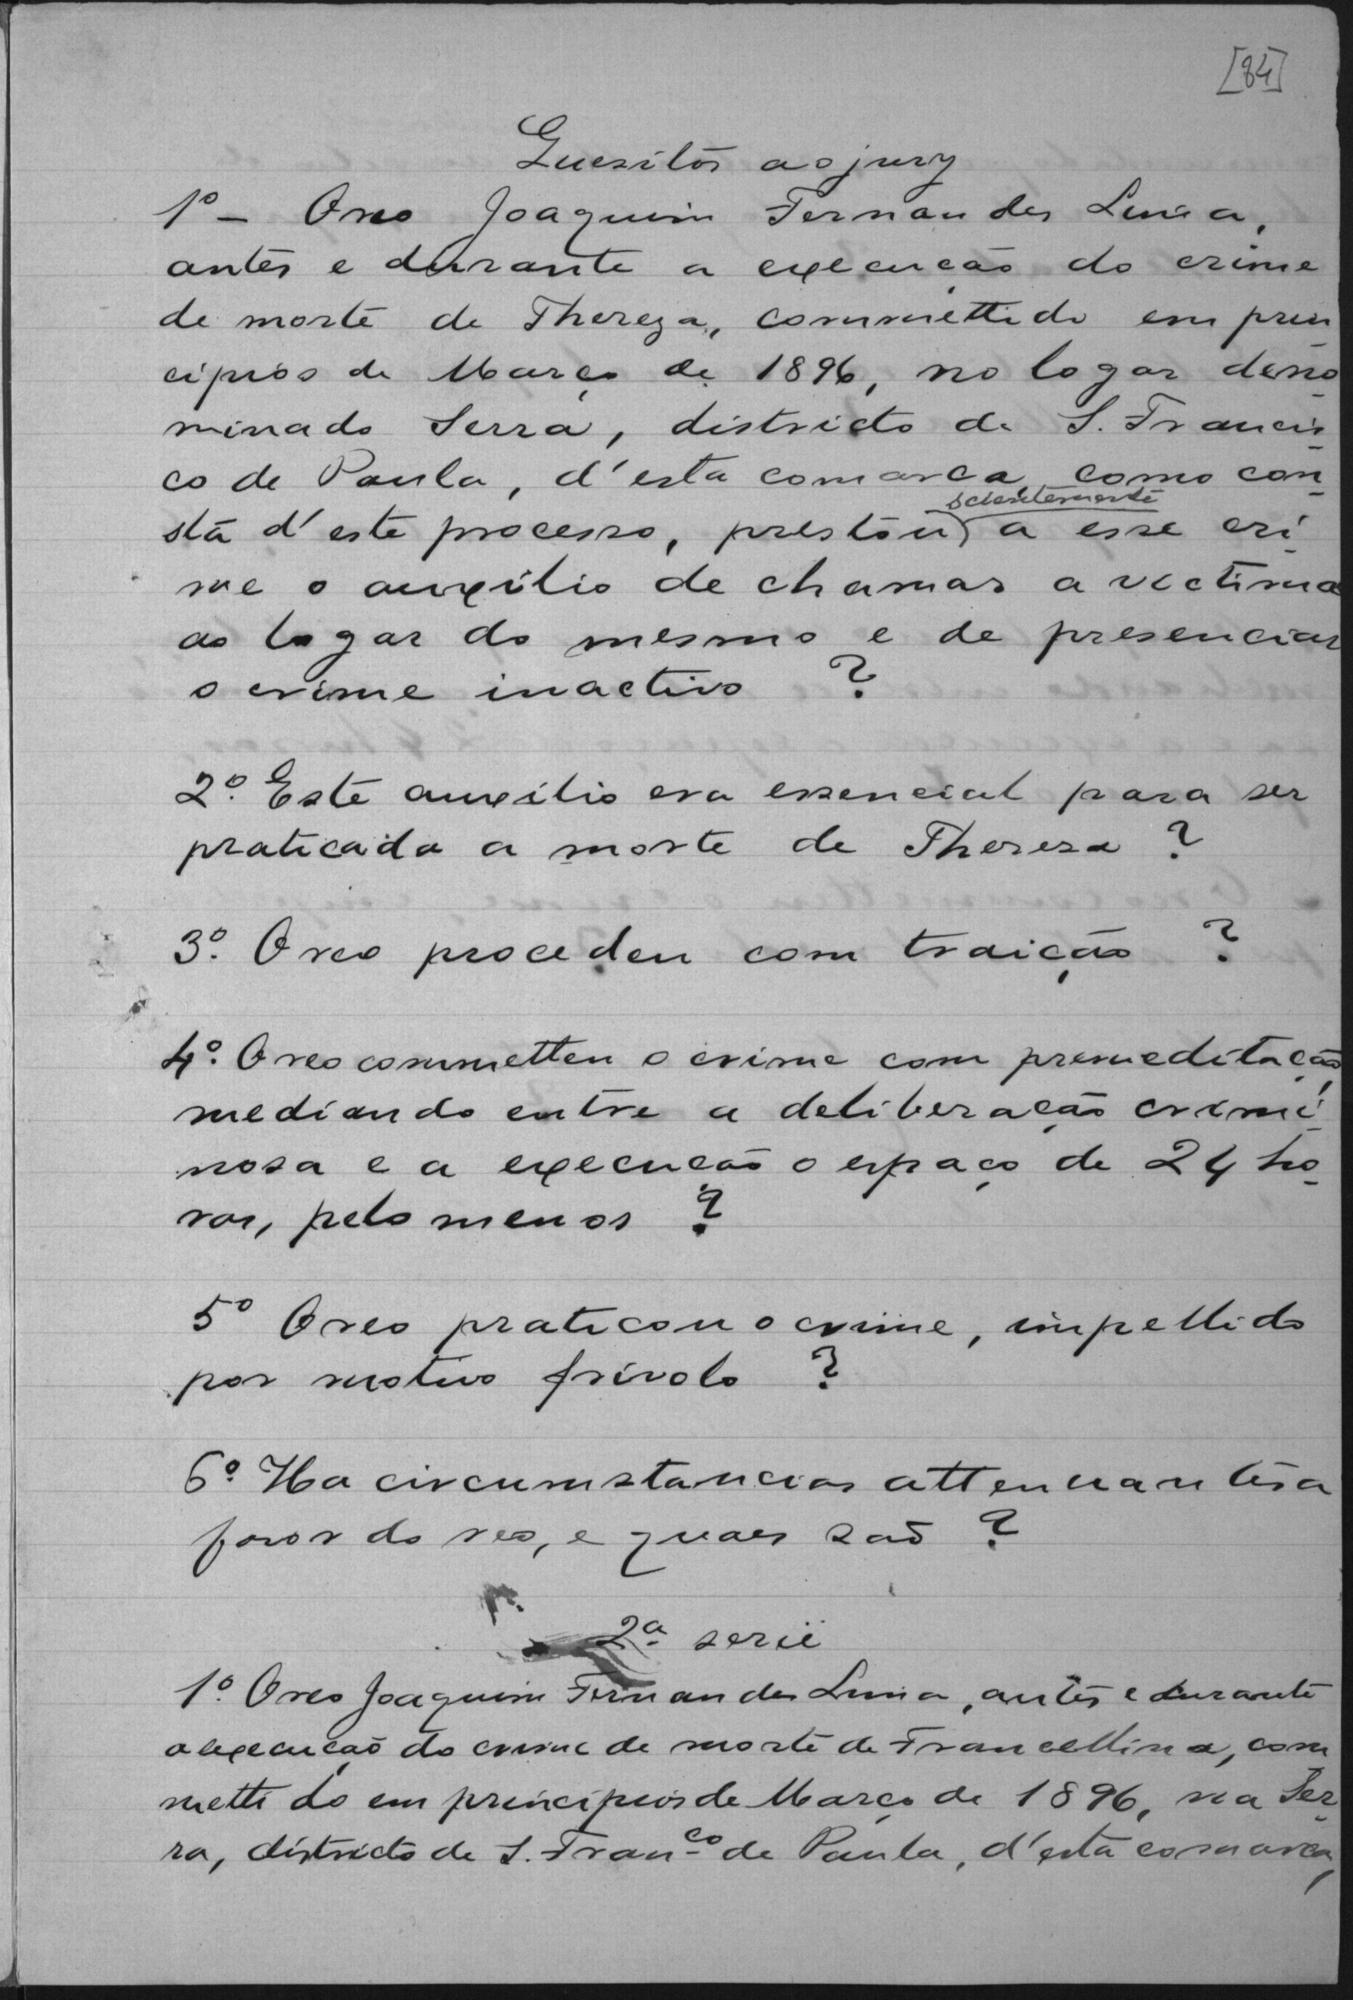 [84]
Quesitos ao jury
1º - O reo Joaquim Fernandes Lima,
antes e durante a execução do crime
de morte de Thereza, commettido em prin
cipios de Março de 1896, no logar deno
minado Serra, districto de S. Francis
co de Paula, d'esta comarca, como con
scientemente
sta d'este processo, prestou a esse cri
me o auxilio de chamar a victima
ao logar do mesmo e de presenciar
o crime inactivo ?
2º. Este auxilio era essencial para ser
praticada a morte de Thereza ?
3º. O reo procedeu com traição ?
4º. O reo commetteu o crime com premeditação
mediando entre a deliberação crimi
nosa e a execução o espaço de 24 ho
ras, pelo menos ?
5º O reo praticou o crime, impellido
por motivo frivolo ?
6º. Ha circumstancias attenuantes a
favor do reo, e quaes são ?
2ª serie
1º. O reo Joaquim Fernandes Lima, antes e durante
a execução do crime de morte de Francellina, com
mettido em principios de Março de 1896, na Ser
ra, districto de S. Franco de Paula, d'esta comarca,